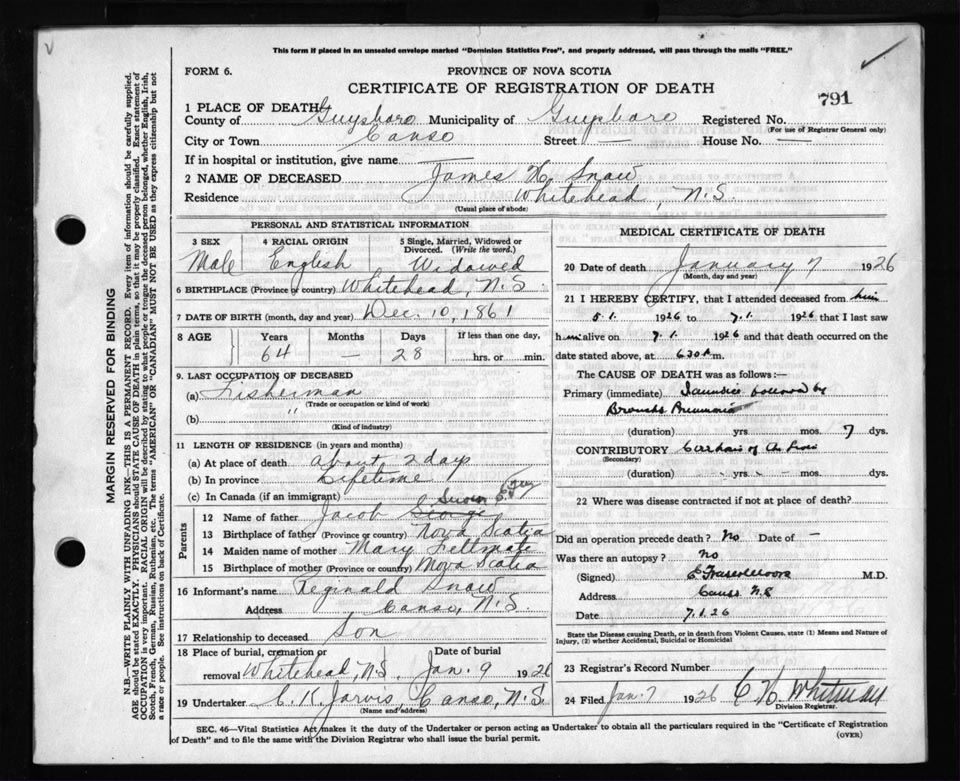 This form if placed in an unsealed envelope marked "Dominion Statistics Free", and properly addressed, will pass through the mails "FREE."
FORM 6.
PROVINCE OF NOVA SCOTIA
CERTIFICATE OF REGISTRATION OF DEATH
791
1 PLACE OF DEATH
County of Guysboro Municipality of Guysboro Registered No.
(For use of Registrar General only)
City or Town Canso Street — House No. —
If in hospital or institution, give name —
2 NAME OF DECEASED James H. Snow
Residence Whitehead, N.S.
(Usual place of abode)
PERSONAL AND STATISTICAL INFORMATION
3 SEX 4 RACIAL ORIGIN 5 Single, Married, Widowed or Divorced. (Write the word.)
Male English Widowed
6 BIRTHPLACE (Province or country) Whitehead, N.S.
7 DATE OF BIRTH (month, day and year) Dec. 10, 1861
8 AGE Years Months Days If less than one day,
64 — 28 hrs. or min.
9. LAST OCCUPATION OF DECEASED
(a) Fisherman
(Trade or occupation or kind of work)
(b) "
(Kind of industry)
11 LENGTH OF RESIDENCE (in years and months)
(a) At place of death about 2 days
(b) In province Lifetime
(c) In Canada (if an immigrant)
Parents
12 Name of father Jacob George
13 Birthplace of father (Province or country) Nova Scotia
14 Maiden name of mother Mary
15 Birthplace of mother (Province or country) Nova Scotia
16 Informant's name Reginald Snow
Address Canso, N.S.
17 Relationship to deceased Son
18 Place of burial, cremation or removal Date of burial
Whitehead, N.S. Jan. 9 1926
19 Undertaker C. K. Jarvis, Canso, N.S.
(Name and address)
MEDICAL CERTIFICATE OF DEATH
20 Date of death January 7 1926
(Month, day and year)
21 I HEREBY CERTIFY, that I attended deceased from him
5.1. 1926 to 7.1. 1926 that I last saw
him alive on 7.1. 1926 and that death occurred on the
date stated above, at 6 30 A m.
The CAUSE OF DEATH was as follows:—
Primary (immediate) Jaundice followed by
Broncho Pneumonia
(duration) yrs mos. 7 dys.
CONTRIBUTORY of
(Secondary)
(duration) yrs. mos. dys.
22 Where was disease contracted if not at place of death?
Did an operation precede death? No Date of —
Was there an autopsy? No
(Signed) M.D.
Address Canso N.S
Date 7.1.26
State the Disease causing Death, or in death from Violent Causes, state (1) Means and Nature of Injury, (2) whether Accidental, Suicidal or Homicidal
23 Registrar's Record Number
24 Filed Jan. 7 1926 Whitman
Division Registrar.
SEC. 46—Vital Statistics Act makes it the duty of the Undertaker or person acting as Undertaker to obtain all the particulars required in the "Certificate of Registration
of Death" and to file the same with the Division Registrar who shall issue the burial permit.
(OVER)
MARGIN RESERVED FOR BINDING
N.B.—WRITE PLAINLY WITH UNFADING INK—THIS IS A PERMANENT RECORD. Every item of information should be carefully supplied.
AGE should be stated EXACTLY. PHYSICIANS should STATE CAUSE OF DEATH in plain terms, so that it may be properly classified. Exact statement of
OCCUPATION is very important. RACIAL ORIGIN will be described by stating to what people or tongue the deceased person belonged, whether English, Irish,
Scotch, French, German, Russian, Ruthenian, etc. The terms "AMERICAN" OR "CANADIAN" MUST NOT BE USED as they express citizenship but not
a race or people. See instructions on back of Certificate.